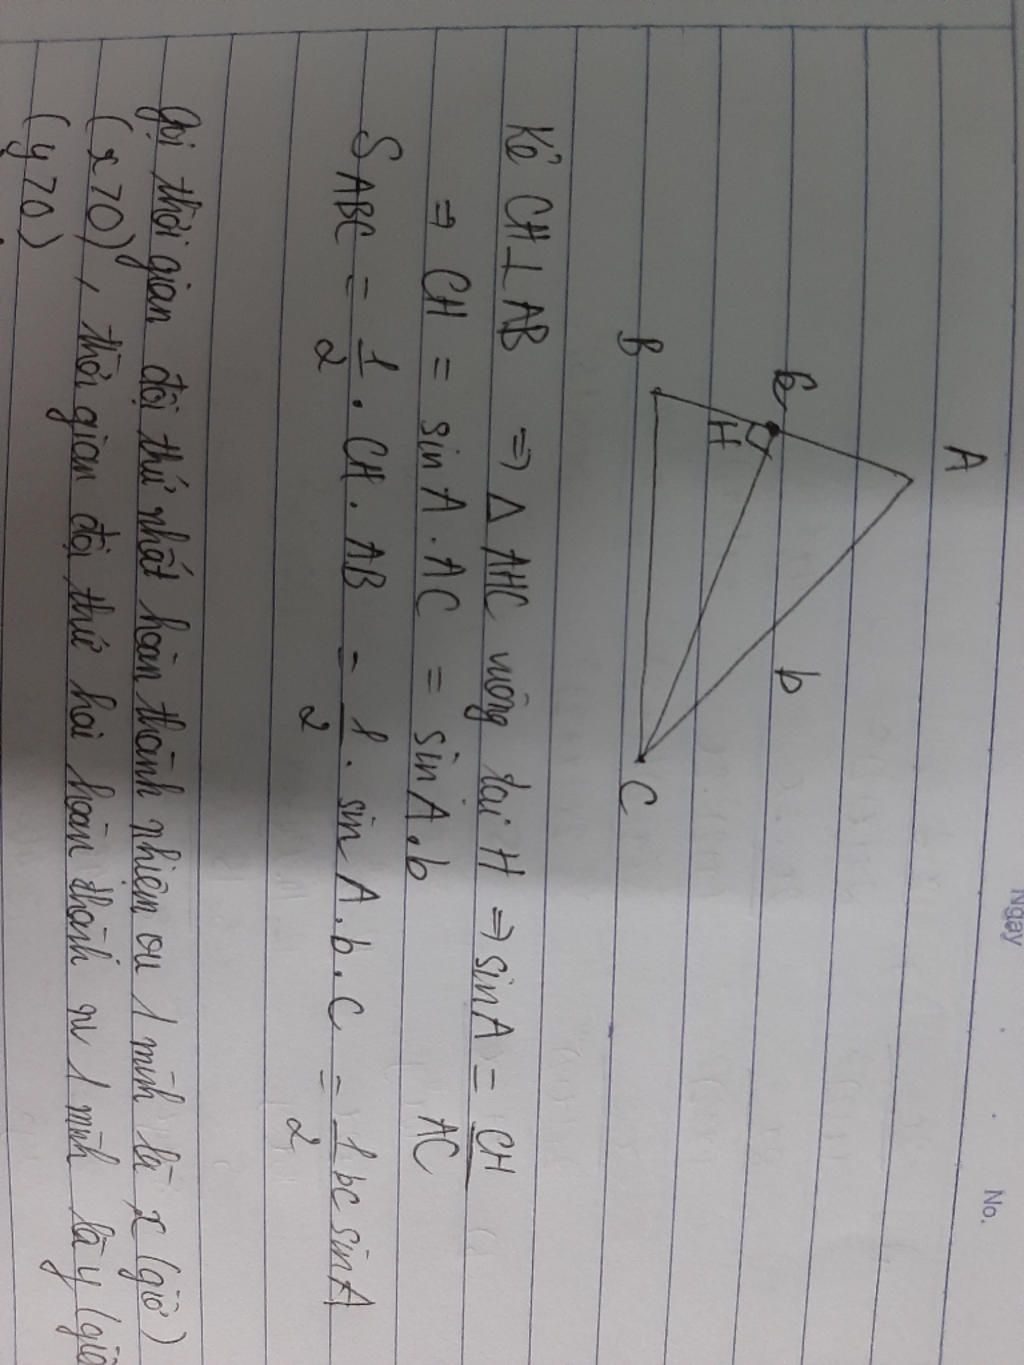 Ngày
No.
A
c
b
H
B
C
Kẻ CH ⊥ AB ⇒ Δ AHC vuông tại H ⇒ sin A = CH/AC
⇒ CH = sin A . AC = sin A . b
S ABC = 1/2 . CH . AB = 1/2 . sin A . b . C = 1/2 bc sin A
gọi thời gian đội thứ nhất hoàn thành nhiệm vụ 1 mình là x (giờ)
(x>0), thời gian đội thứ hai hoàn thành nv 1 mình là y (giờ
(y>0)